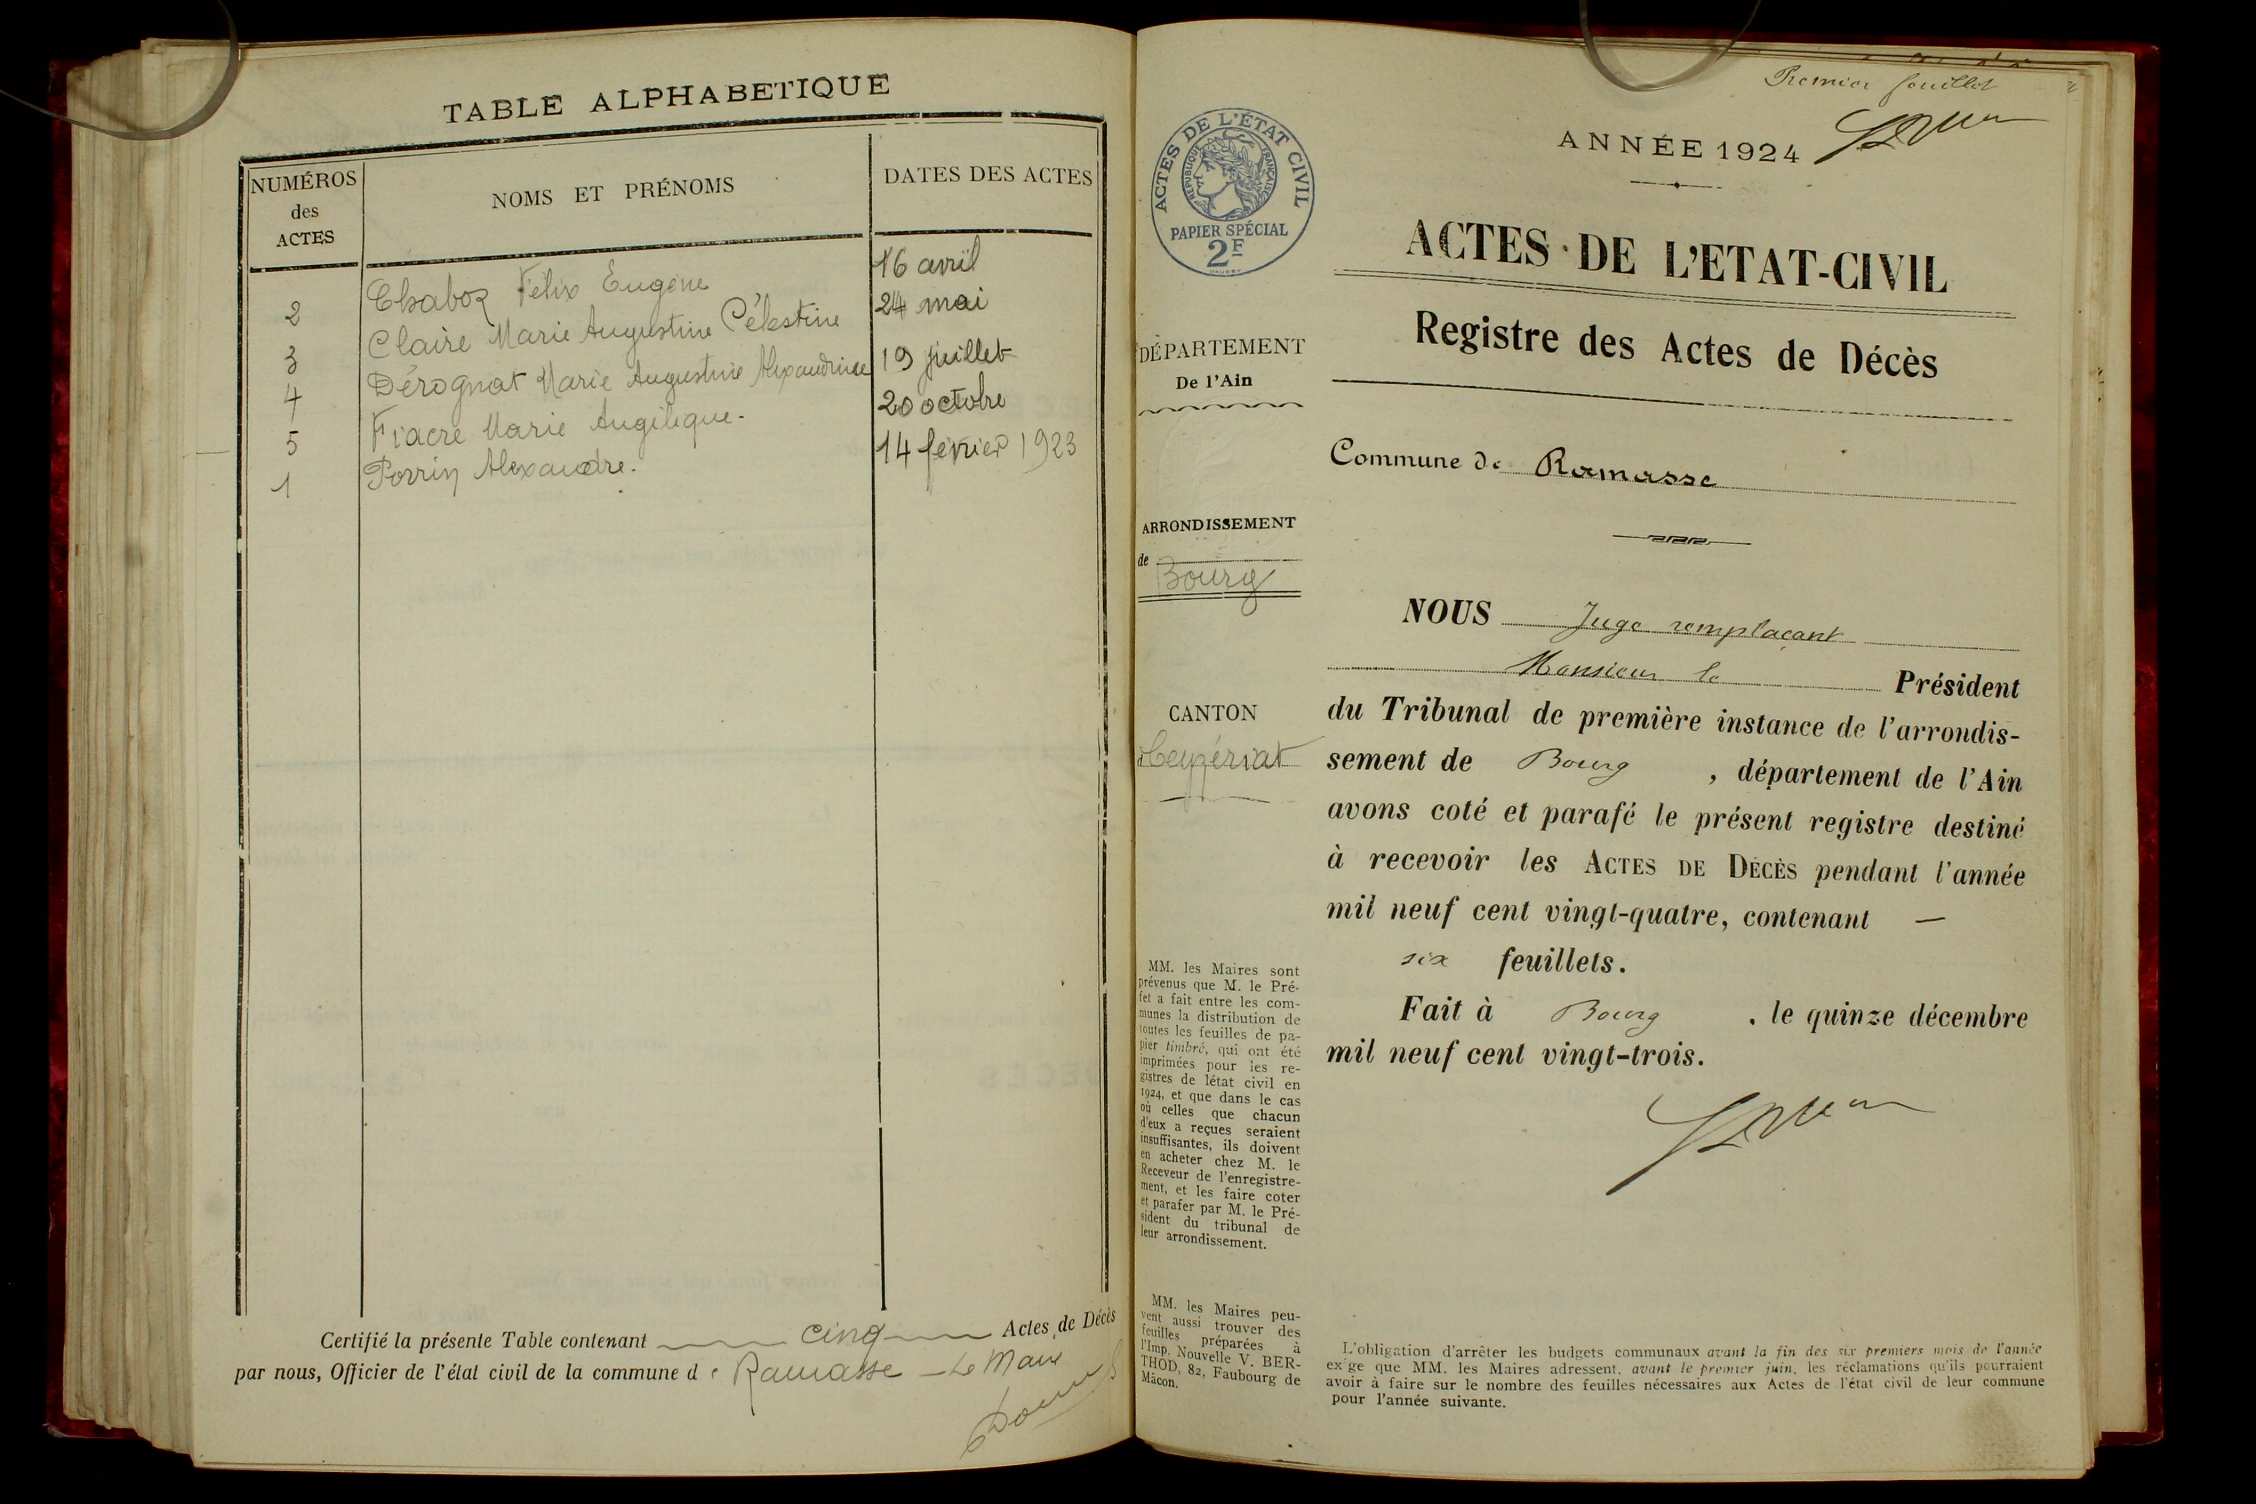 TABLE ALPHABETIQUE
NUMÉROS
des
ACTES
NOMS ET PRÉNOMS
DATES DES ACTES
2 Chaboz Félix Eugène 16 avril
3 Claire Marie Augustine Célestine 24 mai
4 Dérognat Marie Augustine Alexandrine 19 juillet
5 Fiacre Marie Angélique. 20 octobre
1 Perrin Alexandre. 14 février 1923
Certifié la présente Table contenant cinq Actes de Décès
par nous, Officier de l'état civil de la commune de Ramasse - Le Maire
Premier feuillet
ANNÉE 1924
ACTES DE L'ÉTAT CIVIL
RÉPUBLIQUE FRANÇAISE
PAPIER SPÉCIAL
2F
ACTES DE L'ETAT-CIVIL
Registre des Actes de Décès
DÉPARTEMENT
De l'Ain
Commune de Ramasse
ARRONDISSEMENT
de
Bourg
CANTON
Ceyzériat
NOUS Juge remplaçant
Monsieur le Président
du Tribunal de première instance de l'arrondis-
sement de Bourg , département de l'Ain
avons coté et parafé le présent registre destiné
à recevoir les ACTES DE DÉCÈS pendant l'année
mil neuf cent vingt-quatre, contenant —
six feuillets.
Fait à Bourg , le quinze décembre
mil neuf cent vingt-trois.
MM. les Maires sont
prévenus que M. le Pré-
fet a fait entre les com-
munes la distribution de
toutes les feuilles de pa-
pier timbré, qui ont été
imprimées pour les re-
gistres de l'état civil en
1924, et que dans le cas
où celles que chacun
d'eux a reçues seraient
insuffisantes, ils doivent
en acheter chez M. le
Receveur de l'enregistre-
ment, et les faire coter
et parafer par M. le Pré-
sident du tribunal de
leur arrondissement.
MM. les Maires peu-
vent aussi trouver des
feuilles préparées à
l'Imp. Nouvelle V. BER-
THOD, 82, Faubourg de
Mâcon.
L'obligation d'arrêter les budgets communaux avant la fin des six premiers mois de l'année
ex ge que MM. les Maires adressent, avant le premier juin, les réclamations qu'ils pourraient
avoir à faire sur le nombre des feuilles nécessaires aux Actes de l'état civil de leur commune
pour l'année suivante.